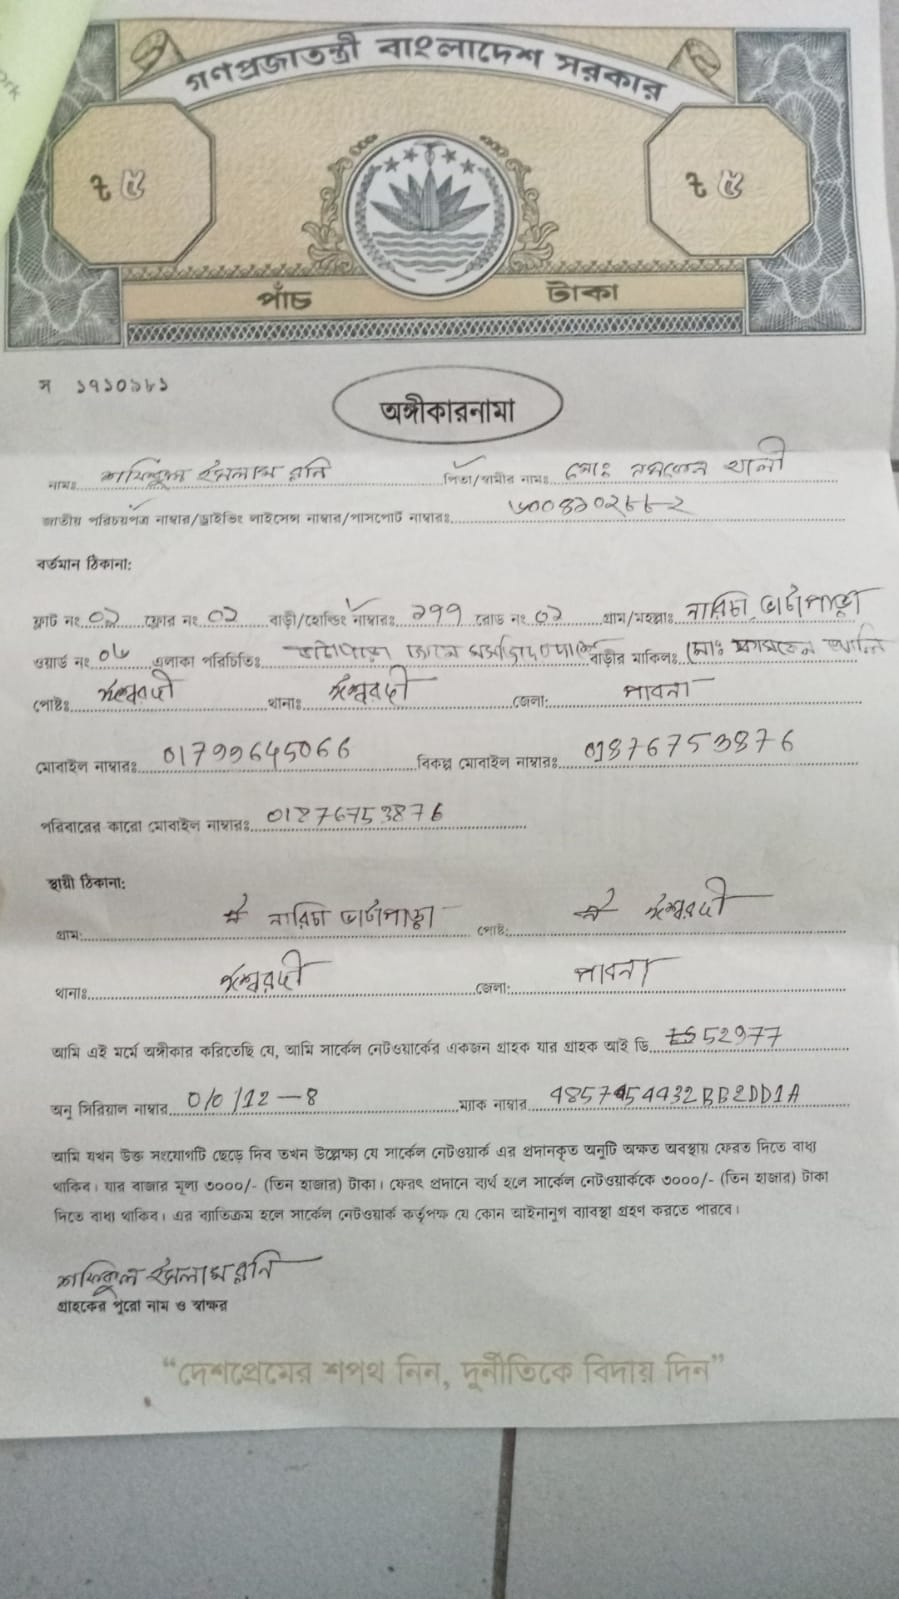 গণপ্রজাতন্ত্রী বাংলাদেশ সরকার
৳ ৫ ৳ ৫
পাঁচ টাকা
স ১৭১০৯৮১
অঙ্গীকারনামা
নামঃ শফিকুল ইসলাম রনি পিতা/স্বামীর নামঃ মোঃ
জাতীয় পরিচয়পত্র নাম্বার/ড্রাইভিং লাইসেন্স নাম্বার/পাসপোর্ট নাম্বারঃ
বর্তমান ঠিকানা:
ফ্লাট নং ০১ ফ্লোর নং ০১ বাড়ী/হোল্ডিং নাম্বারঃ ১৭৭ রোড নং ০১ গ্রাম/মহল্লাঃ নারিচা ভাটাপাড়া
ওয়ার্ড নং ০৬ এলাকা পরিচিতিঃ ভাটাপাড়া জামে মসজিদের পাশে বাড়ীর মালিকঃ মোঃ
পোষ্টঃ ঈশ্বরদী থানাঃ ঈশ্বরদী জেলা: পাবনা
মোবাইল নাম্বারঃ 01799645066 বিকল্প মোবাইল নাম্বারঃ 01876753876
পরিবারের কারো মোবাইল নাম্বারঃ 01876753876
স্থায়ী ঠিকানা:
গ্রাম: নারিচা ভাটাপাড়া পোষ্ট: ঈশ্বরদী
থানাঃ ঈশ্বরদী জেলা: পাবনা
আমি এই মর্মে অঙ্গীকার করিতেছি যে, আমি সার্কেল নেটওয়ার্কের একজন গ্রাহক যার গ্রাহক আই ডি 52977
অনু সিরিয়াল নাম্বার 0/0/12-8 ম্যাক নাম্বার
আমি যখন উক্ত সংযোগটি ছেড়ে দিব তখন উল্লেক্ষ্য যে সার্কেল নেটওয়ার্ক এর প্রদানকৃত অনুটি অক্ষত অবস্থায় ফেরত দিতে বাধ্য
থাকিব। যার বাজার মূল্য ৩০০০/- (তিন হাজার) টাকা। ফেরৎ প্রদানে ব্যর্থ হলে সার্কেল নেটওয়ার্ককে ৩০০০/- (তিন হাজার) টাকা
দিতে বাধ্য থাকিব। এর ব্যাতিক্রম হলে সার্কেল নেটওয়ার্ক কর্তৃপক্ষ যে কোন আইনানুগ ব্যাবস্থা গ্রহণ করতে পারবে।
শফিকুল ইসলাম রনি
গ্রাহকের পুরো নাম ও স্বাক্ষর
“দেশপ্রেমের শপথ নিন, দুর্নীতিকে বিদায় দিন”